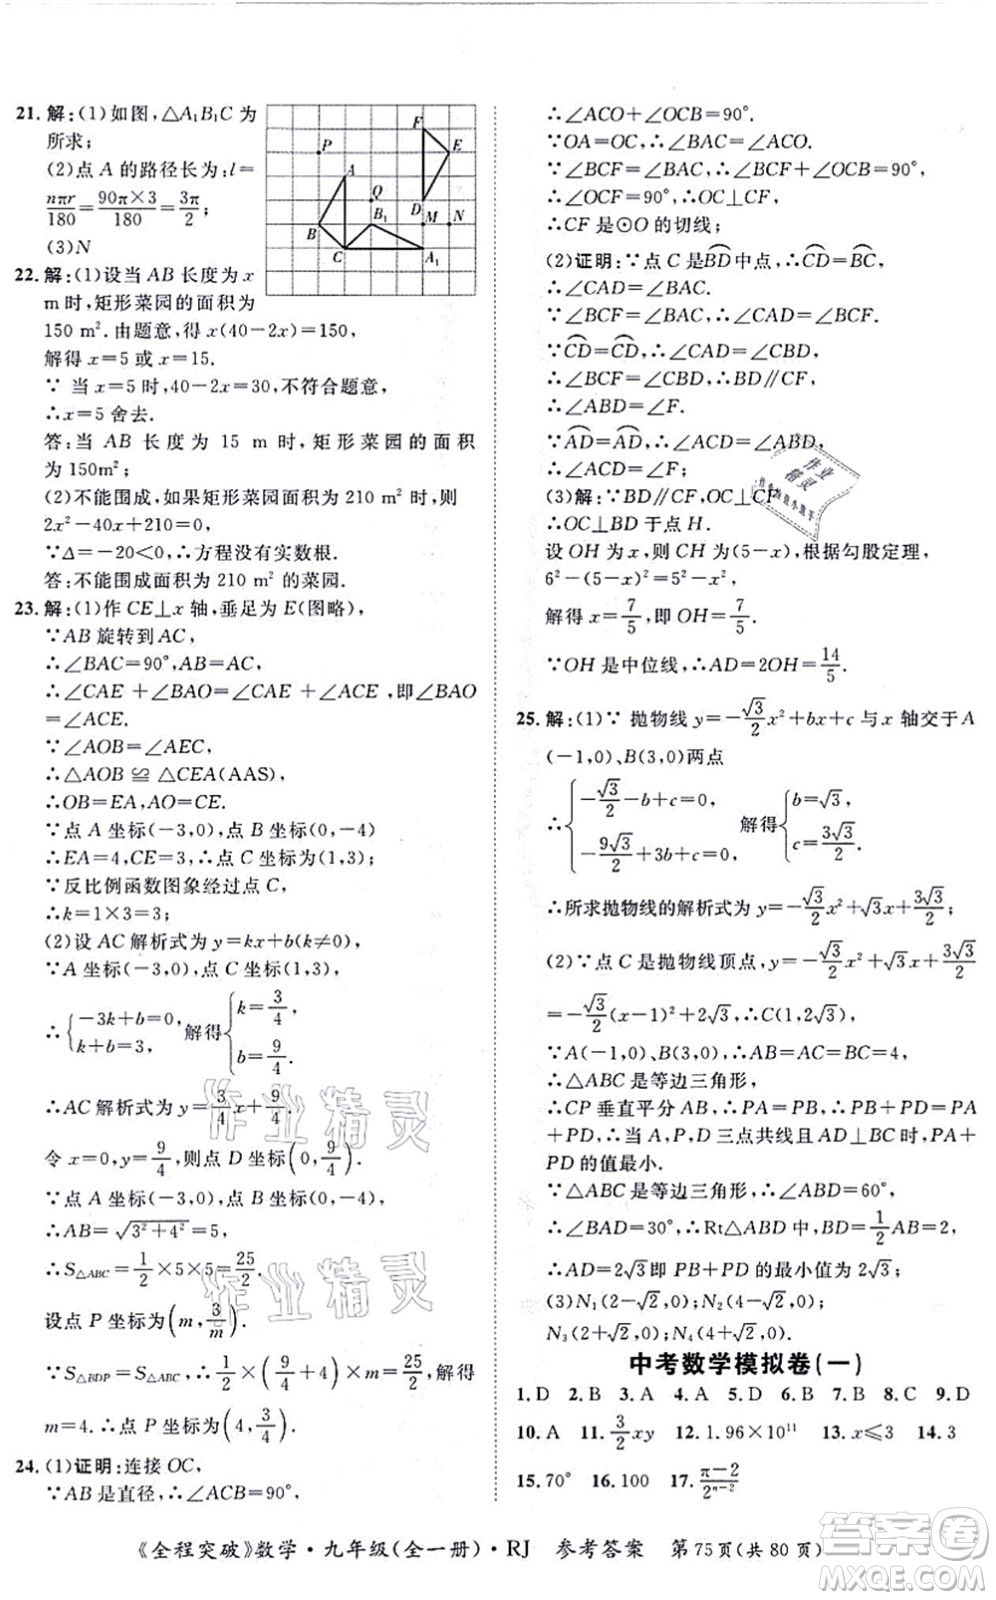 21. 解:(1)如图,△A₁B₁C 为
所求;
(2)点 A 的路径长为:l=
nπr/180=90π×3/180=3π/2;
(3)N
P
F
E
A
Q
D
M
N
B
B₁
C
A₁
22. 解:(1)设当 AB 长度为 x
m 时,矩形菜园的面积为
150 m². 由题意,得 x(40-2x)=150,
解得 x=5 或 x=15.
∵ 当 x=5 时,40-2x=30,不符合题意,
∴x=5 舍去.
答:当 AB 长度为 15 m 时,矩形菜园的面积
为 150m²;
(2)不能围成,如果矩形菜园为 210 m² 时,则
2x²-40x+210=0,
∵Δ=-20<0,∴方程没有实数根.
答:不能围成面积为 210 m² 的菜园.
23. 解:(1)作 CE⊥x 轴,垂足为 E(图略),
∵AB 旋转到 AC,
∴∠BAC=90°,AB=AC,
∴∠CAE+∠BAO=∠CAE+∠ACE,即∠BAO
=∠ACE.
∵∠AOB=∠AEC,
∴△AOB≌△CEA(AAS),
∴OB=EA,AO=CE.
∵点 A 坐标(-3,0),点 B 坐标(0,-4)
∴EA=4,CE=3,∴点 C 坐标为(1,3);
∵反比例函数图象经过点 C,
∴k=1×3=3;
(2)设 AC 解析式为 y=kx+b(k≠0),
∵A 坐标(-3,0),点 C 坐标(1,3),
∴{-3k+b=0, k+b=3, 解得{k=3/4, b=9/4.
∴AC 解析式为 y=3/4x+9/4.
令 x=0,y=9/4,则点 D 坐标(0,9/4),
∵点 A 坐标(-3,0),点 B 坐标(0,-4),
∴AB=√(3²+4²)=5,
∴S△ABC=1/2×5×5=25/2.
设点 P 坐标为(m,3/m)
∵S△BDP=S△ABC,∴1/2×(9/4+4)×m=25/2,解得
m=4.∴点 P 坐标为(4,3/4).
24. (1)证明:连接 OC,
∵AB 是直径,∴∠ACB=90°,
∴∠ACO+∠OCB=90°.
∵OA=OC,∴∠BAC=∠ACO.
∵∠BCF=∠BAC,∴∠BCF+∠OCB=90°,
∴∠OCF=90°,∴OC⊥CF,
∴CF 是⊙O 的切线;
(2)证明:∵点 C 是BD中点,∴CD=BC,
∴∠CAD=∠BAC.
∵∠BCF=∠BAC,∴∠CAD=∠BCF.
∵CD=CD,∴∠CAD=∠CBD,
∴∠BCF=∠CBD,∴BD∥CF,
∴∠ABD=∠F.
∵AD=AD,∴∠ACD=∠ABD,
∴∠ACD=∠F;
(3)解:∵BD∥CF,OC⊥CF
∴OC⊥BD 于点 H.
设 OH 为 x,则 CH 为(5-x),根据勾股定理,
6²-(5-x)²=5²-x²,
解得 x=7/5,即 OH=7/5,
∵OH 是中位线,∴AD=2OH=14/5.
25. 解:(1)∵ 抛物线 y=-√3/2x²+bx+c 与 x 轴交于A
(-1,0)、B(3,0)两点
∴{-√3/2-b+c=0, -9√3/2+3b+c=0, 解得{b=√3, c=3√3/2.
∴所求抛物线的解析式为 y=-√3/2x²+√3x+3√3/2;
(2)∵点 C 是抛物线顶点,y=-√3/2x²+√3x+3√3/2
=-√3/2(x-1)²+2√3,∴C(1,2√3),
∵A(-1,0)、B(3,0),∴AB=AC=BC=4,
∴△ABC 是等边三角形,
∴CP 垂直平分 AB,∴PA=PB,∴PD+PB=PA
+PD,∴当 A、P、D 三点共线且 AD⊥BC 时,PA+
PD 的值最小.
∵△ABC 是等边三角形,∴∠ABC=60°,
∴∠BAD=30°,∴Rt△ABD 中,BD=1/2AB=2,
∴AD=2√3,即 PB+PD 的最小值为 2√3;
(3)N₁(2-√2,0)、N₂(2+√2,0)、
N₃(2+√10,0)、N₄(2-√10,0)
中考数学模拟卷(一)
1. D 2. B 3. A 4. A 5. D 6. B 7. B 8. C 9. D
10. A 11. 3/2xy 12. 1.96×10¹¹ 13. x⩽3 14. 3
15. 70° 16. 100 17. π-2/2ⁿ⁻²
《全程突破》数学·九年级(全一册)·RJ 参考答案 第 75 页(共 80 页)
作业精灵
作业精灵
作业
精灵
MXQE.COM